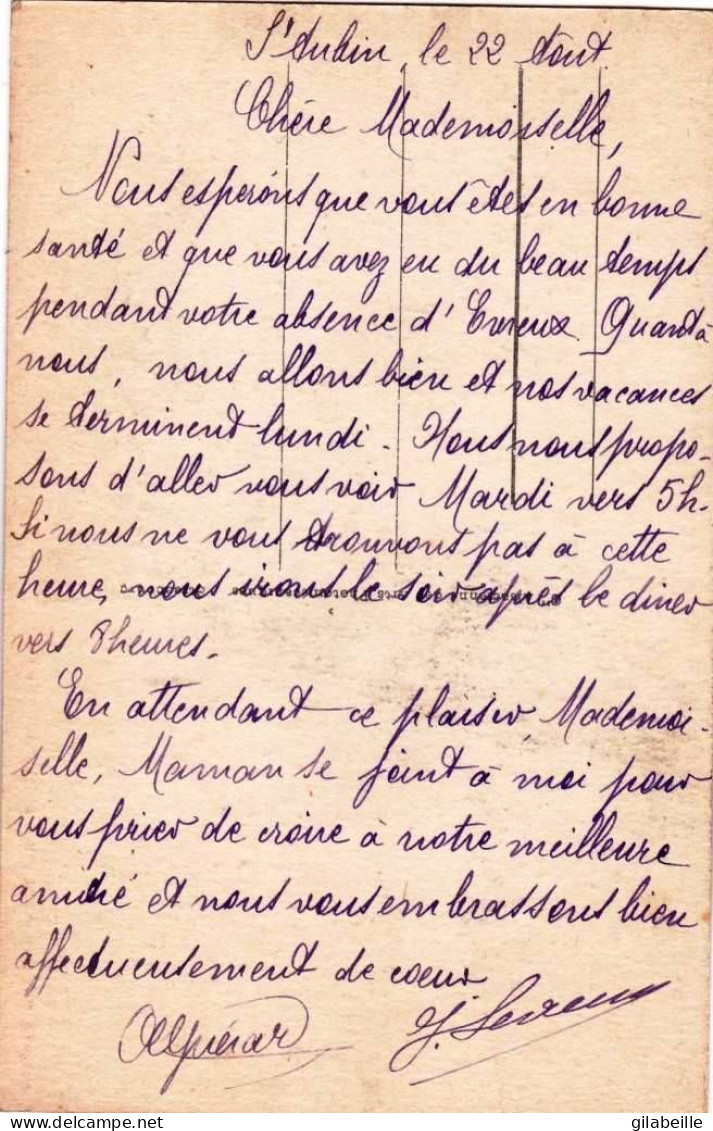 St Aubin, le 22 Août
Chère Mademoiselle,
Nous esperons que vous êtes en bonne
santé et que vous avez eu du beau temps
pendant votre absence d'Evreux. Quant à
nous, nous allons bien et nos vacances
se terminent lundi - Nous nous propo-
sons d'aller vous voir Mardi vers 5h.
Si nous ne vous trouvons pas à cette
heure, nous irons le soir après le diner
vers 8 heures.
En attendant ce plaisir, Mademoi-
selle, Maman se joint à moi pour
vous prier de croire à notre meilleure
amitié et nous vous embrassons bien
affectueusement de coeur
J.
delcampe.net
gilabeille